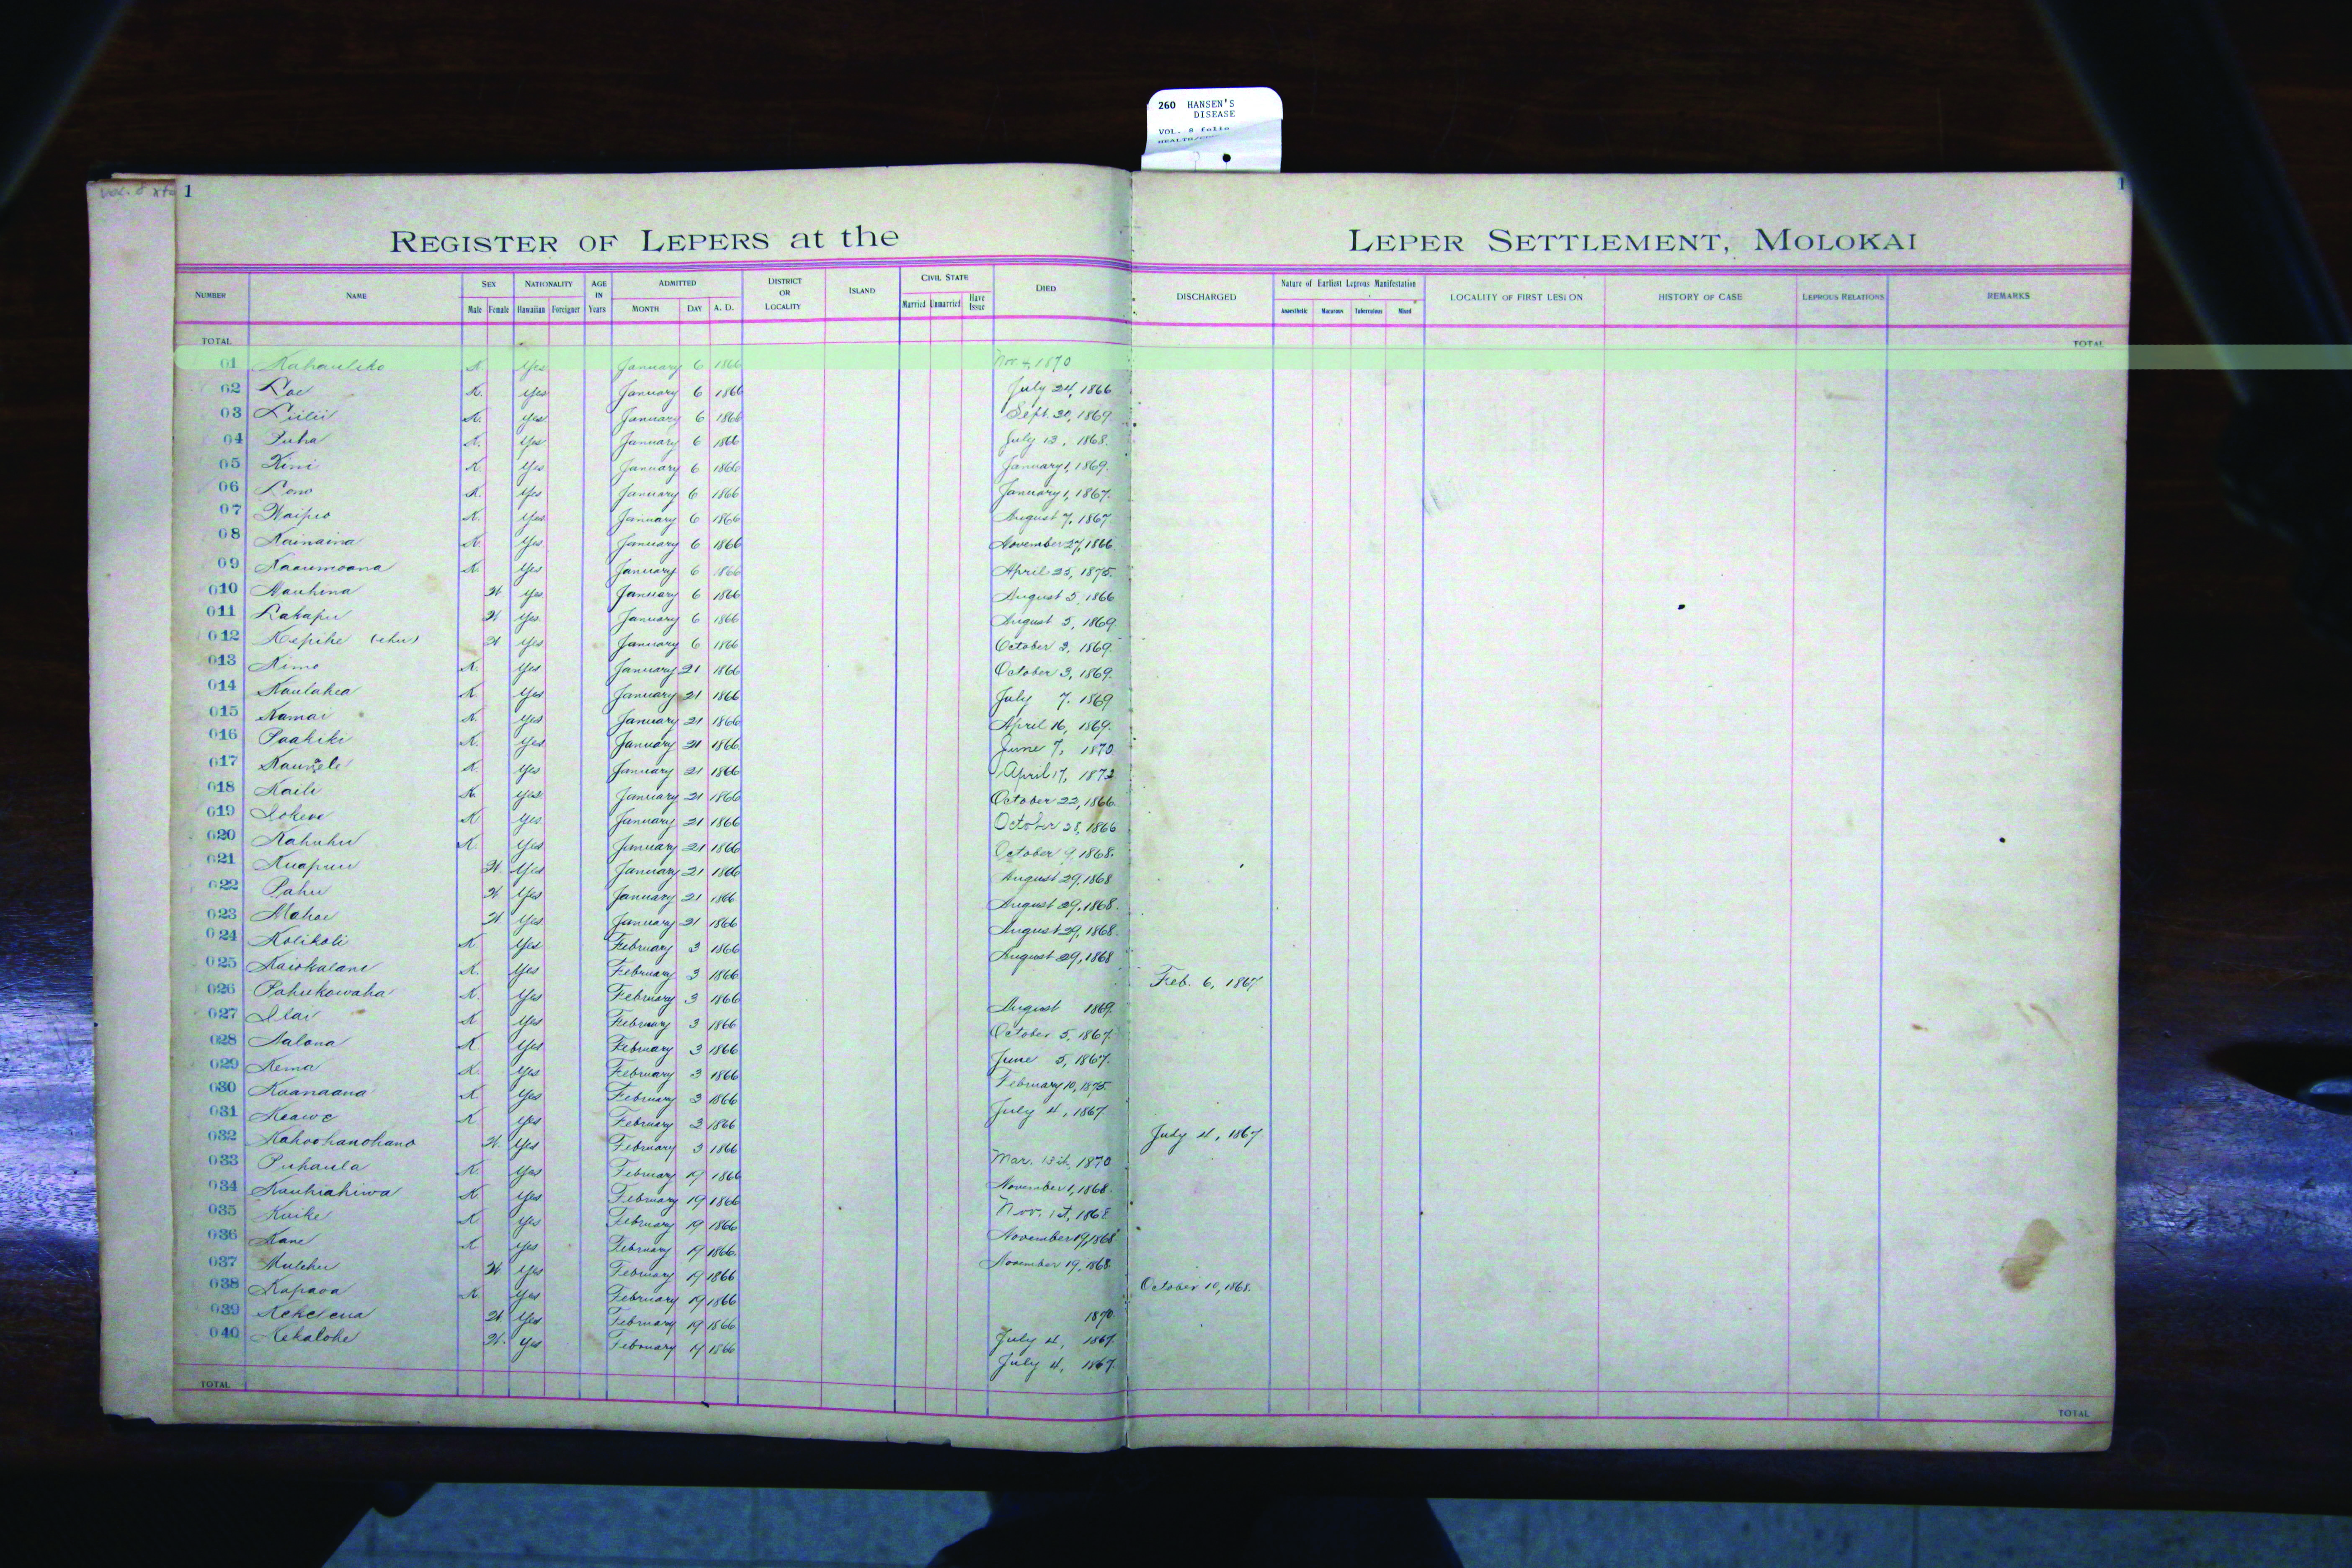 260 HANSEN'S
DISEASE
VOL. 8 folio
1
1
REGISTER OF LEPERS at the LEPER SETTLEMENT, MOLOKAI
NUMBER NAME SEX NATIONALITY AGE IN Years ADMITTED DISTRICT OR LOCALITY ISLAND CIVIL STATE DIED DISCHARGED Nature of Earliest Leprous Manifestation LOCALITY OF FIRST LESION HISTORY OF CASE LEPROUS RELATIONS REMARKS
Male Female Hawaiian Foreigner MONTH DAY A. D. Married Unmarried Have Issue Anaesthetic Macurous Tuberculous Mixed
TOTAL TOTAL
01 Kahauliko K Yes January 6 1866 Nov. 4, 1870
02 Lae K. Yes January 6 1866 July 24, 1866
03 Liilii K. Yes January 6 1866 Sept. 20, 1869
04 Puha K. Yes January 6 1866 July 13, 1868.
05 Kini K. Yes January 6 1866 January 1, 1869.
06 Lono K. Yes January 6 1866 January 1, 1867.
07 Waipio K. Yes January 6 1866 August 7, 1867
08 Kainaina K. Yes January 6 1866 November 27, 1866
09 Kaaumoana K. Yes January 6 1866 April 25, 1875.
010 Mauhina W Yes January 6 1866 August 5, 1866
011 Lakapu W Yes January 6 1866 August 5, 1869
012 Kepihe (ehu) W Yes January 6 1866 October 3, 1869.
013 Kimo K. Yes January 21 1866 October 3, 1869.
014 Kaulahea K Yes January 21 1866 July 7, 1869
015 Kamai K. Yes January 21 1866 April 16, 1869.
016 Paakiki K. Yes January 21 1866 June 7, 1870
017 K. Yes January 21 1866 April 17, 1872
018 Kaili K. Yes January 21 1866 October 22, 1866.
019 Iokewe K Yes January 21 1866 October 28, 1866
020 Kahuhu K. Yes January 21 1866 October 9, 1868.
021 Kuapuu W. Yes January 21 1866 August 29, 1868
022 Pahu W Yes January 21 1866 August 29, 1868.
023 Mahoe W Yes January 21 1866 August 29, 1868.
024 Kolikoli K Yes February 3 1866 August 29, 1868
025 Kaiokalani K. Yes February 3 1866 Feb. 6, 1867
026 Pahukowaha K. Yes February 3 1866 August 1869
027 Ilai K Yes February 3 1866 October 5, 1867.
028 Aalona K Yes February 3 1866 June 5, 1867.
029 Kema K. Yes February 3 1866 February 10, 1875
030 Kaanaana K Yes February 3 1866 July 4, 1867
031 Keawe K. Yes February 3 1866 July 4, 1867
032 Kahoohanohano W. Yes February 3 1866 Mar. 1870
033 Puhaula K. Yes February 19 1866 November 1, 1868.
034 Kauhiahiwa K Yes February 19 1866 Nov. 1st, 1868
035 Kuike K Yes February 19 1866 November 19, 1868
036 Kane K Yes February 19 1866 November 19, 1868
037 W. Yes February 19 1866 October 10, 1868.
038 Kapaoa K. Yes February 19 1866 1870
039 Kekelena W Yes February 19 1866 July 4, 1867.
040 Kekalohe W. Yes February 19 1866 July 4, 1867.
TOTAL TOTAL